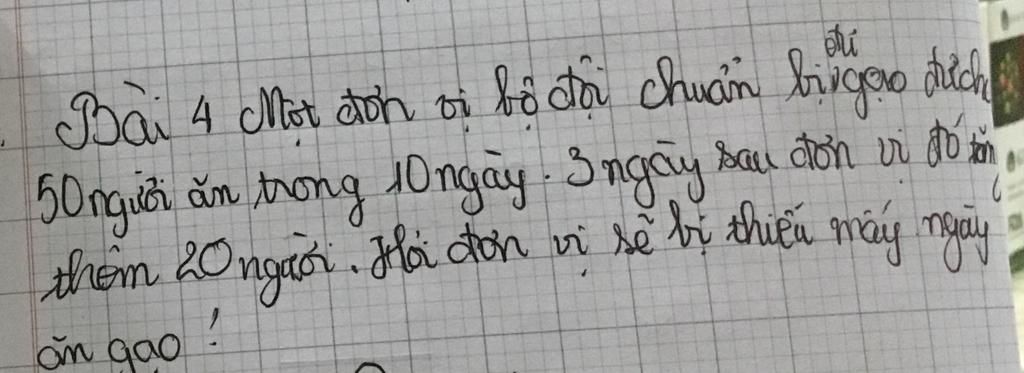 Bài 4 Một đơn vị bộ đội chuẩn bị đủ gạo
50 người ăn trong 10 ngày. 3 ngày sau đơn vị đó
thêm 20 người. Hỏi đơn vị sẽ bị thiếu mấy ngày
ăn gạo!